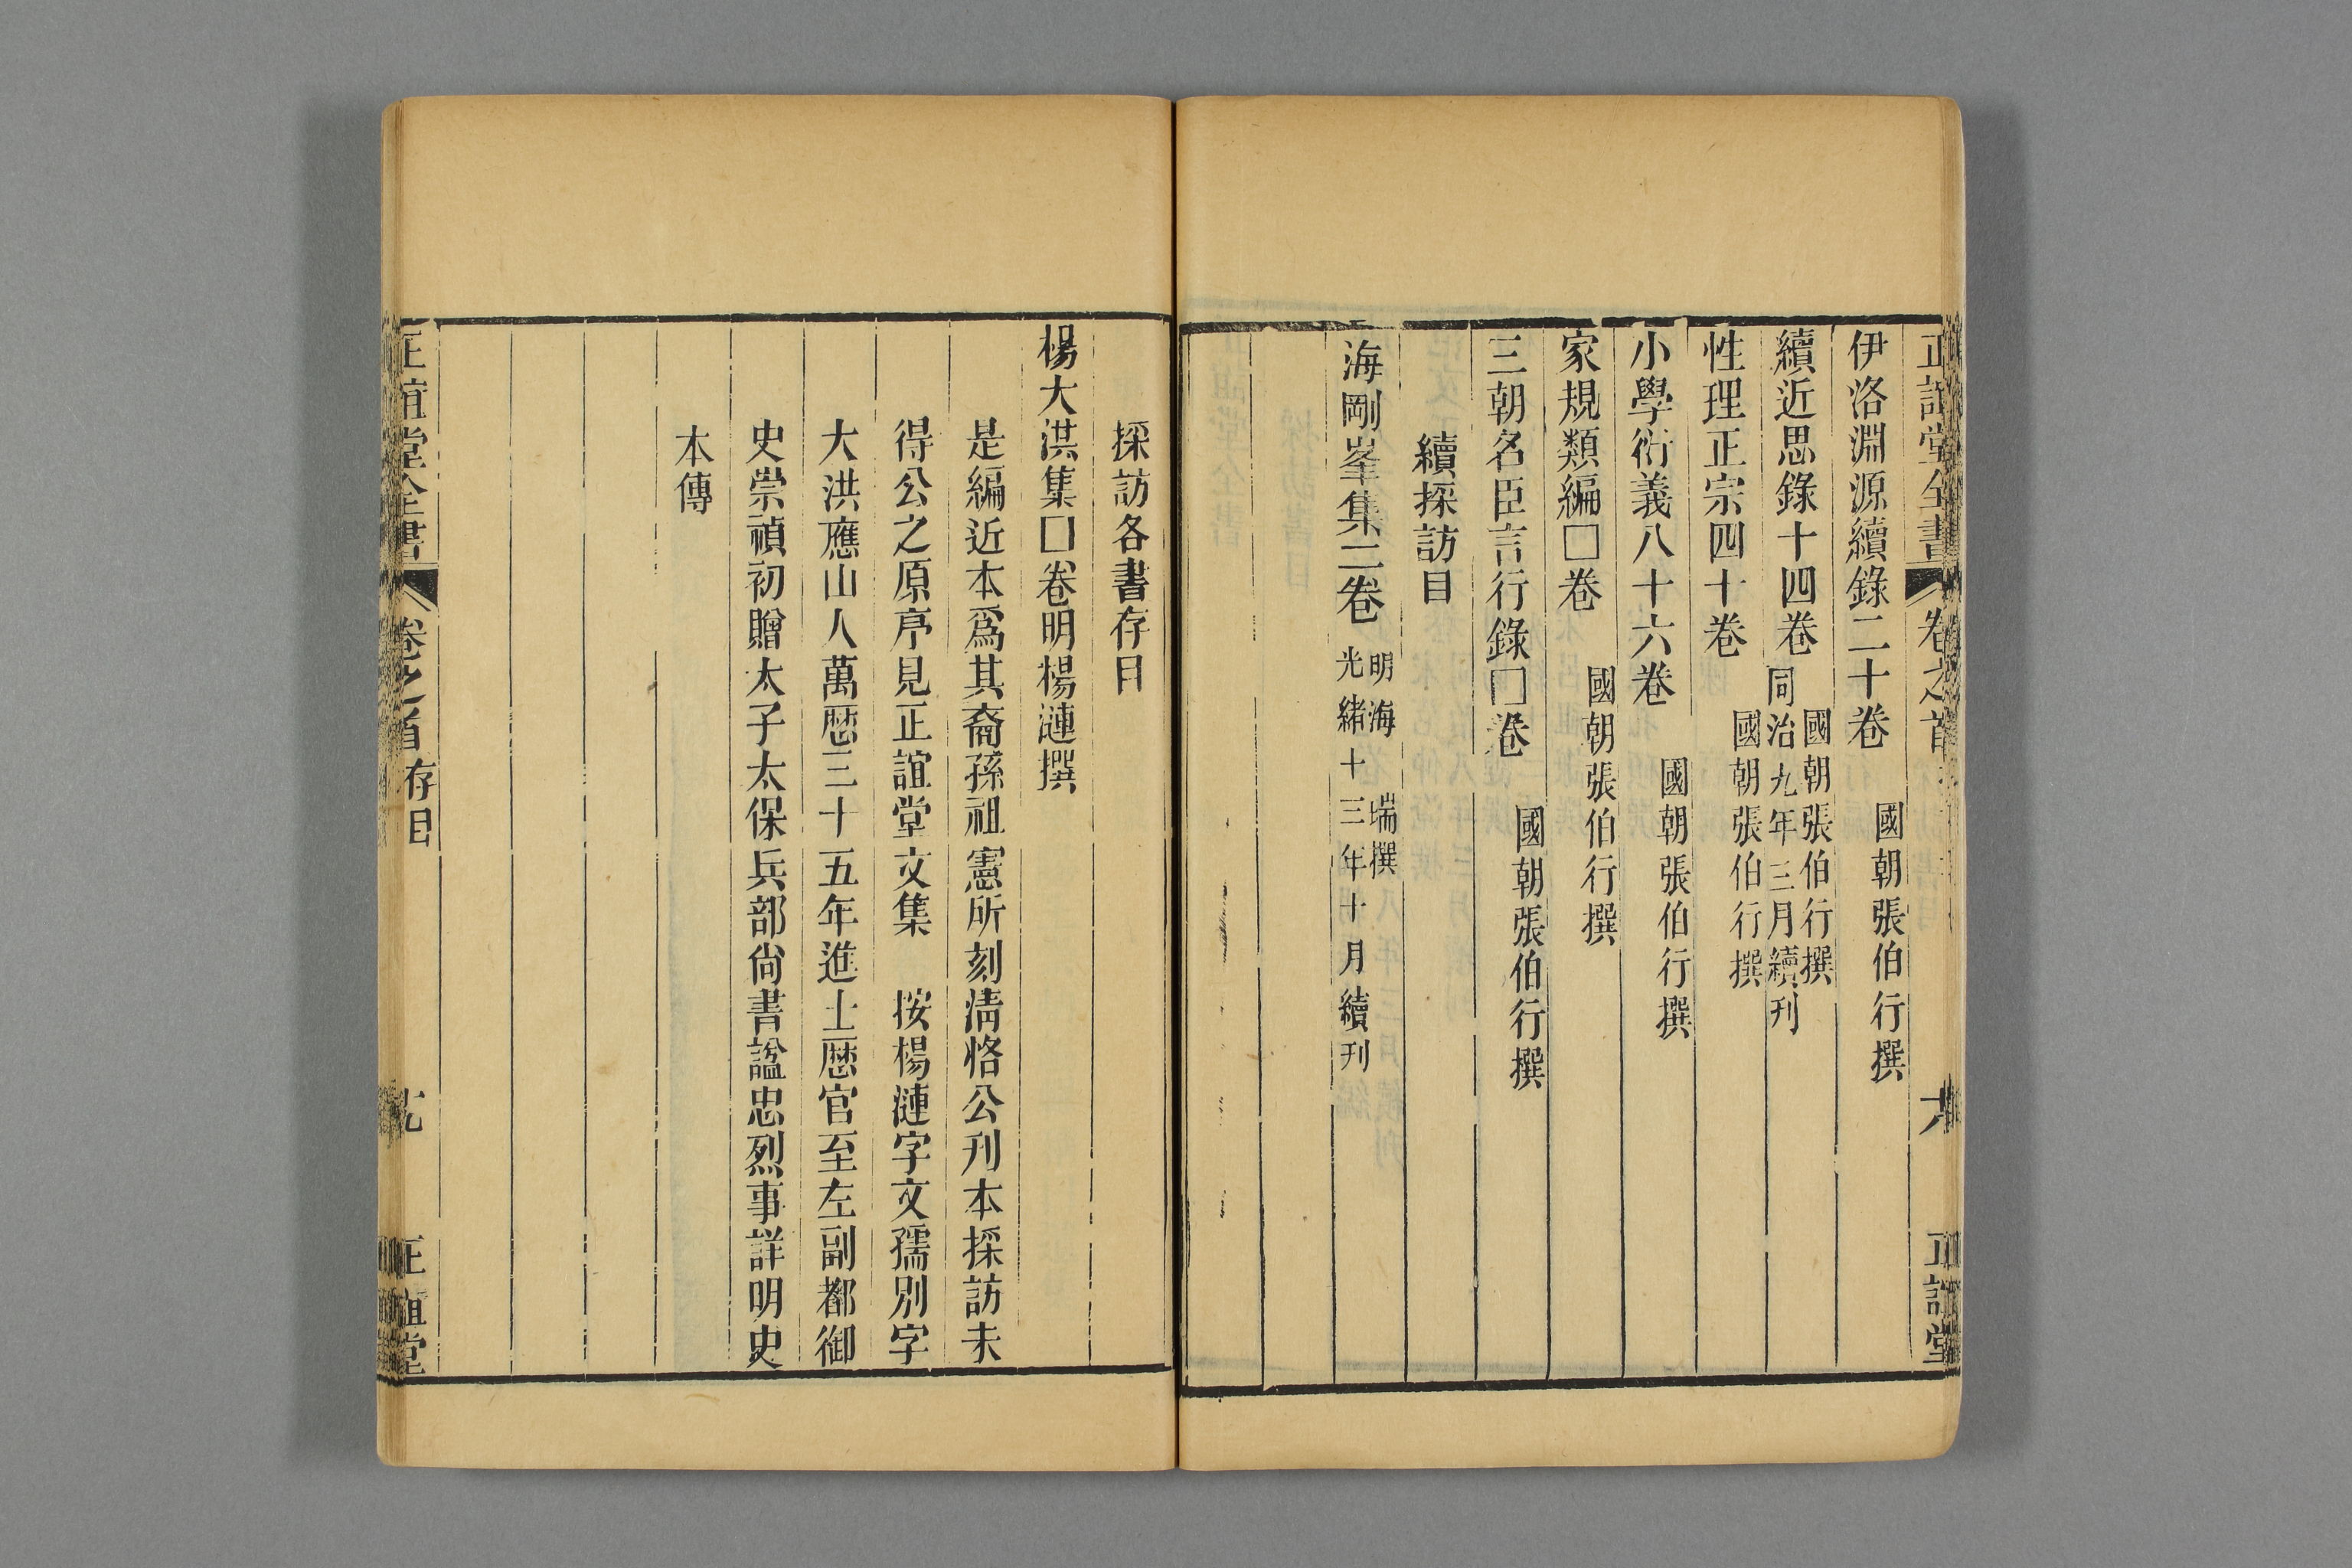 伊洛淵源續錄二十卷 國朝張伯行撰
續近思錄十四卷 國朝張伯行撰
同治九年三月續刊
性理正宗四十卷 國朝張伯行撰
小學衍義八十六卷 國朝張伯行撰
家規類編□卷 國朝張伯行撰
三朝名臣言行錄□卷 國朝張伯行撰
續採訪目
海剛峯集二卷 明海瑞撰
光緒十三年十月續刊
採訪各書存目
楊大洪集□卷明楊漣撰
是編近本爲其裔孫祖憲所刻淸恪公刋本採訪未
得公之原序見正誼堂文集 按楊漣字文孺別字
大洪應山人萬厯三十五年進士厯官至左副都御
史崇禎初贈太子太保兵部尙書謚忠烈事詳明史
本傳
正誼堂全書 卷之首 存目
正誼堂